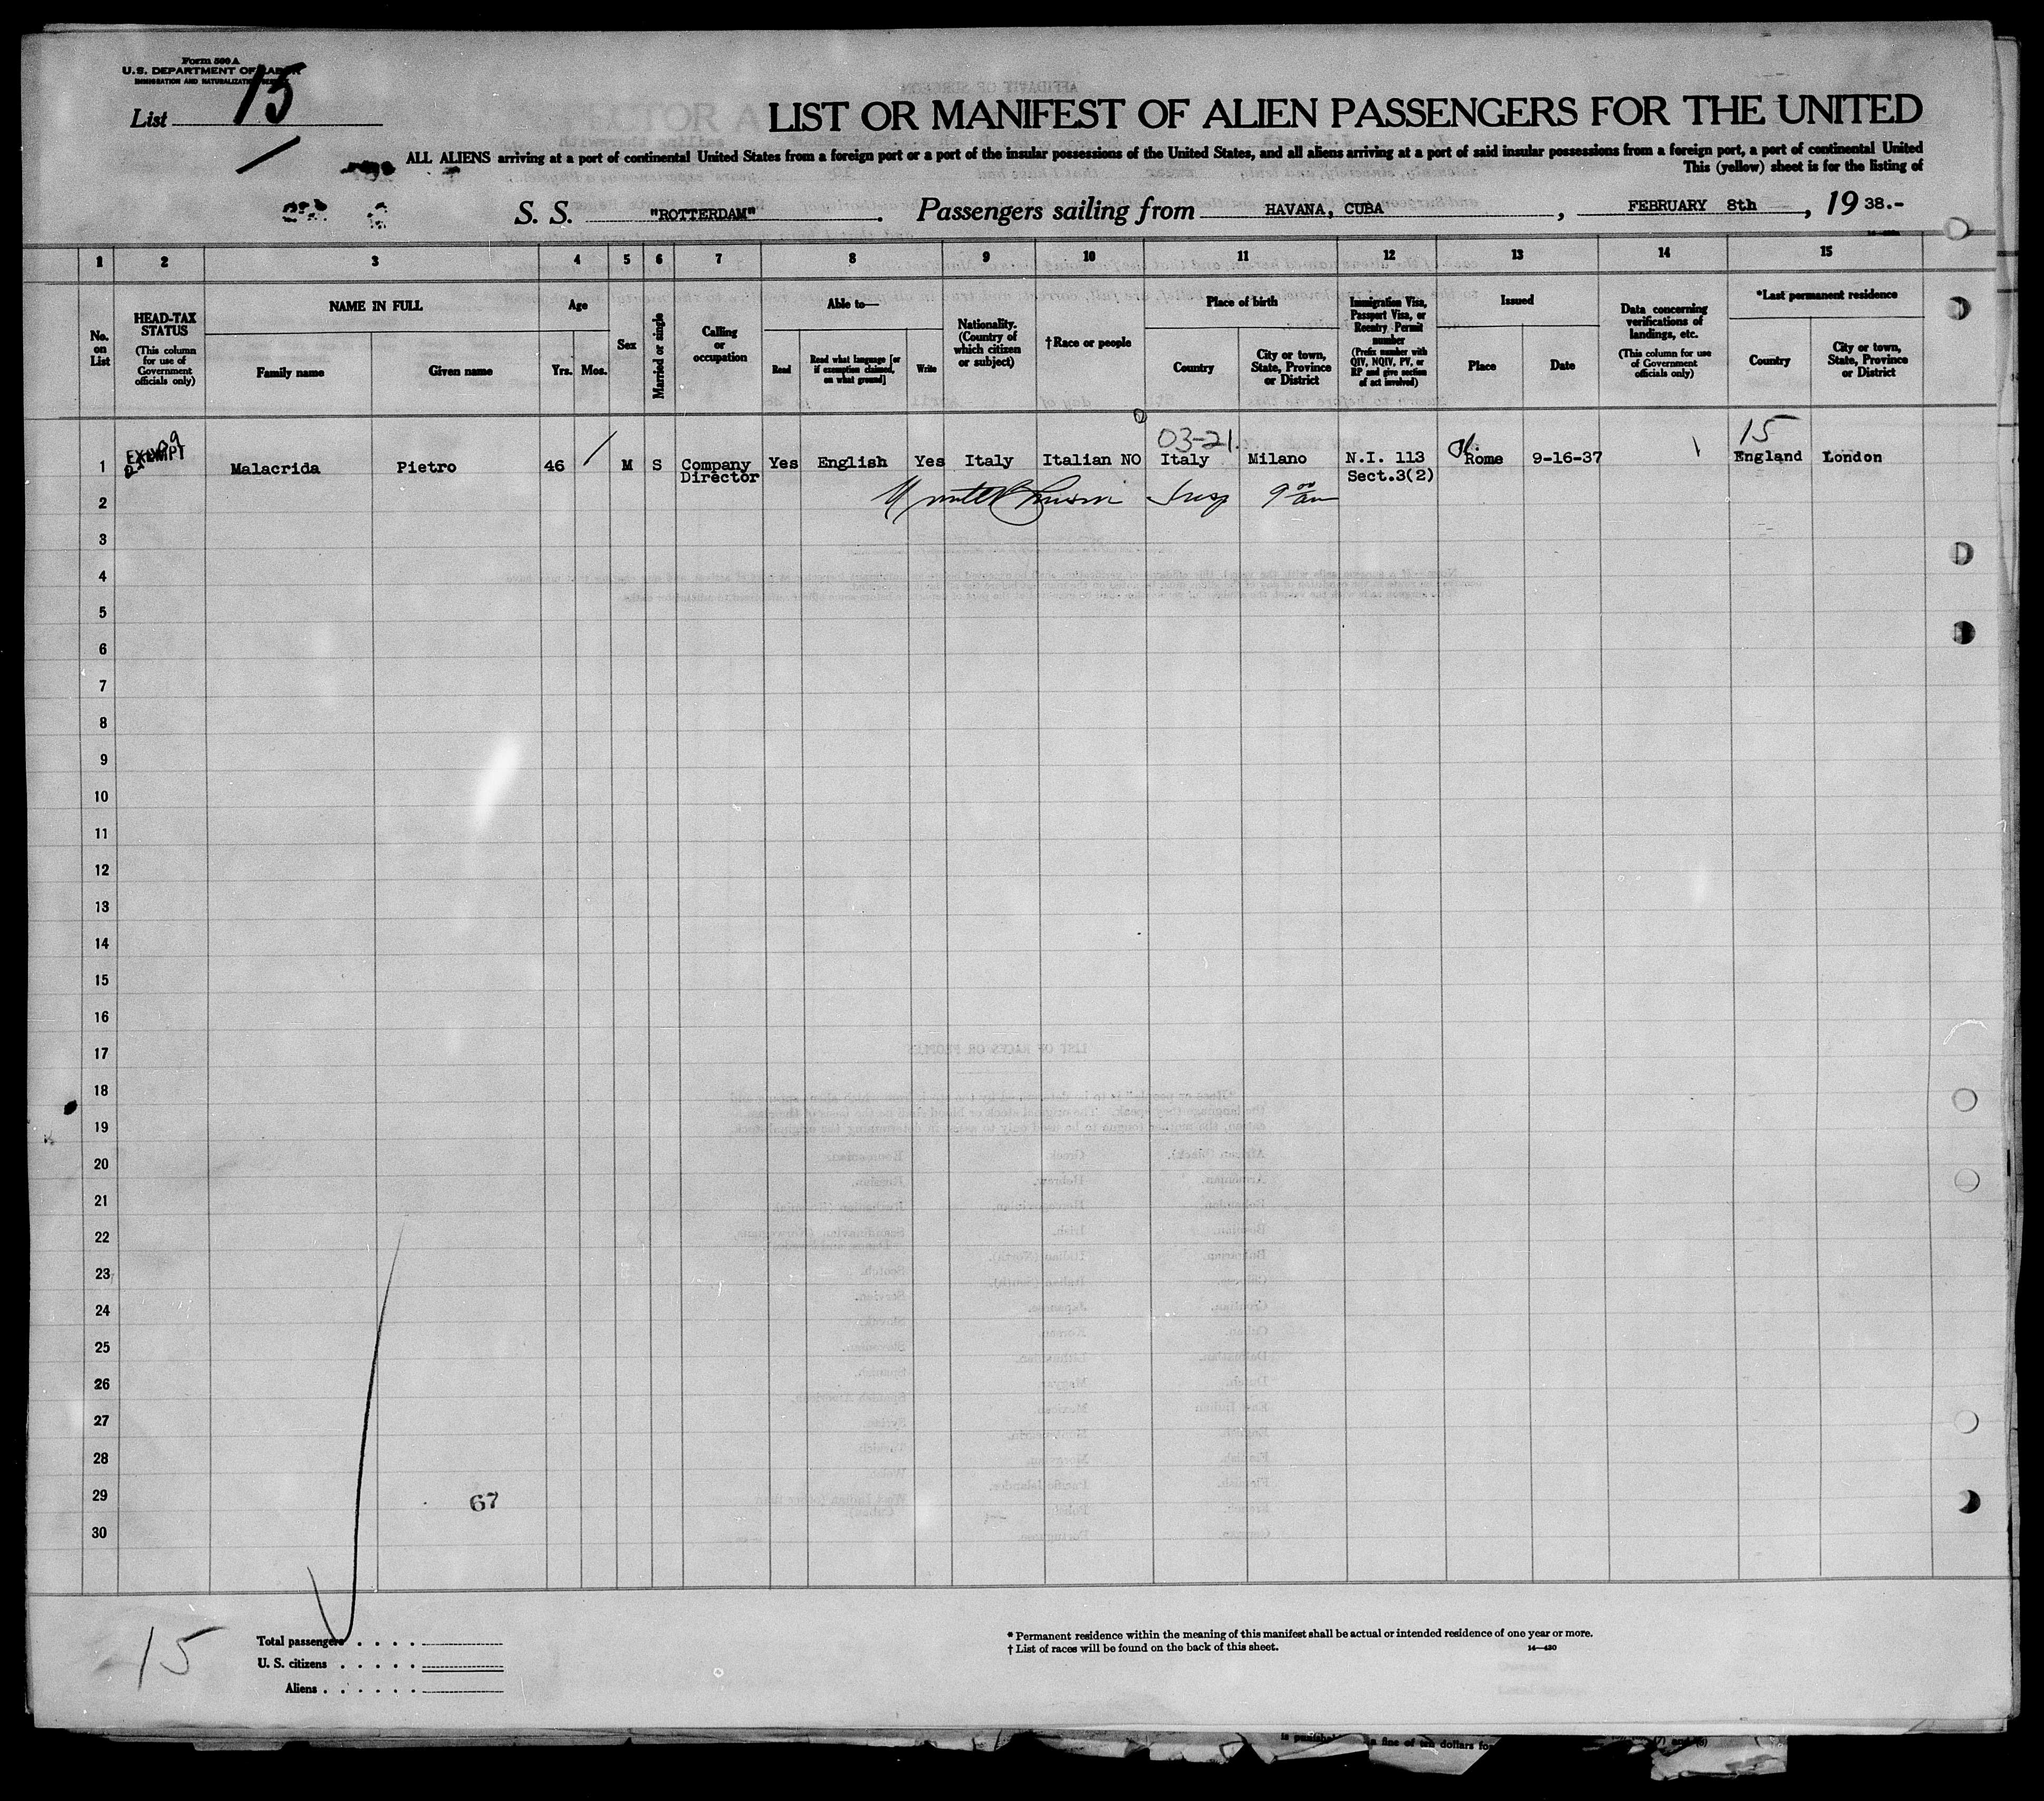 Form 500 A
U.S. DEPARTMENT OF LABOR
IMMIGRATION AND NATURALIZATION SERVICE
List 15
LIST OR MANIFEST OF ALIEN PASSENGERS FOR THE UNITED
ALL ALIENS arriving at a port of continental United States from a foreign port or a port of the insular possessions of the United States, and all aliens arriving at a port of said insular possessions from a foreign port, a port of continental United
This (yellow) sheet is for the listing of
S. S. "ROTTERDAM". Passengers sailing from HAVANA, CUBA, FEBRUARY 8th, 19 38.-
1 2 3 4 5 6 7 8 9 10 11 12 13 14 15
No. on List
HEAD-TAX STATUS
(This column for use of Government officials only)
NAME IN FULL
Family name
Given name
Age
Yrs. Mos.
Sex
Married or single
Calling or occupation
Able to—
Read
Read what language [or if exemption claimed, on what ground]
Write
Nationality. (Country of which citizen or subject)
†Race or people
Place of birth
Country
City or town, State, Province or District
Immigration Visa, Passport Visa, or Reentry Permit number
(Prefix number with QIV, NQIV, PV, or RP and give section of act involved)
Issued
Place
Date
Data concerning verifications of landings, etc.
(This column for use of Government officials only)
*Last permanent residence
Country
City or town, State, Province or District
03-21. 15
1 EXEMPT Malacrida Pietro 46 M S Company Yes English Yes Italy Italian NO Italy Milano N.I. 113 Rome 9-16-37 England London
Director Sect.3(2)
2 Insp 9 00 am
3
4
5
6
7
8
9
10
11
12
13
14
15
16
17
18
19
20
21
22
23
24
25
26
27
28
29
67
30
15
Total passengers . . . .
U. S. citizens . . . . .
Aliens . . . . . .
* Permanent residence within the meaning of this manifest shall be actual or intended residence of one year or more.
† List of races will be found on the back of this sheet.
14—430
a fine of ten dollars for